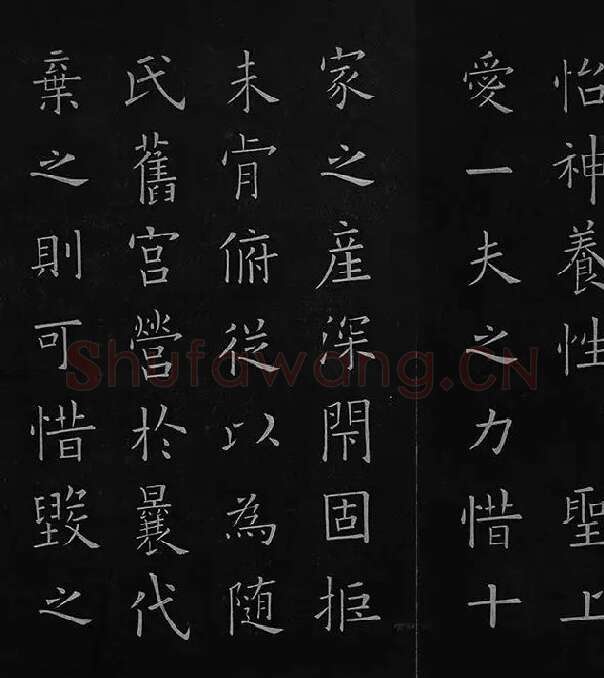 怡神養性聖上
愛一夫之力惜十
家之產深閇固拒
未肯俯從以為随
氏舊宮營於曩代
棄之則可惜毀之
Shufawang.CN